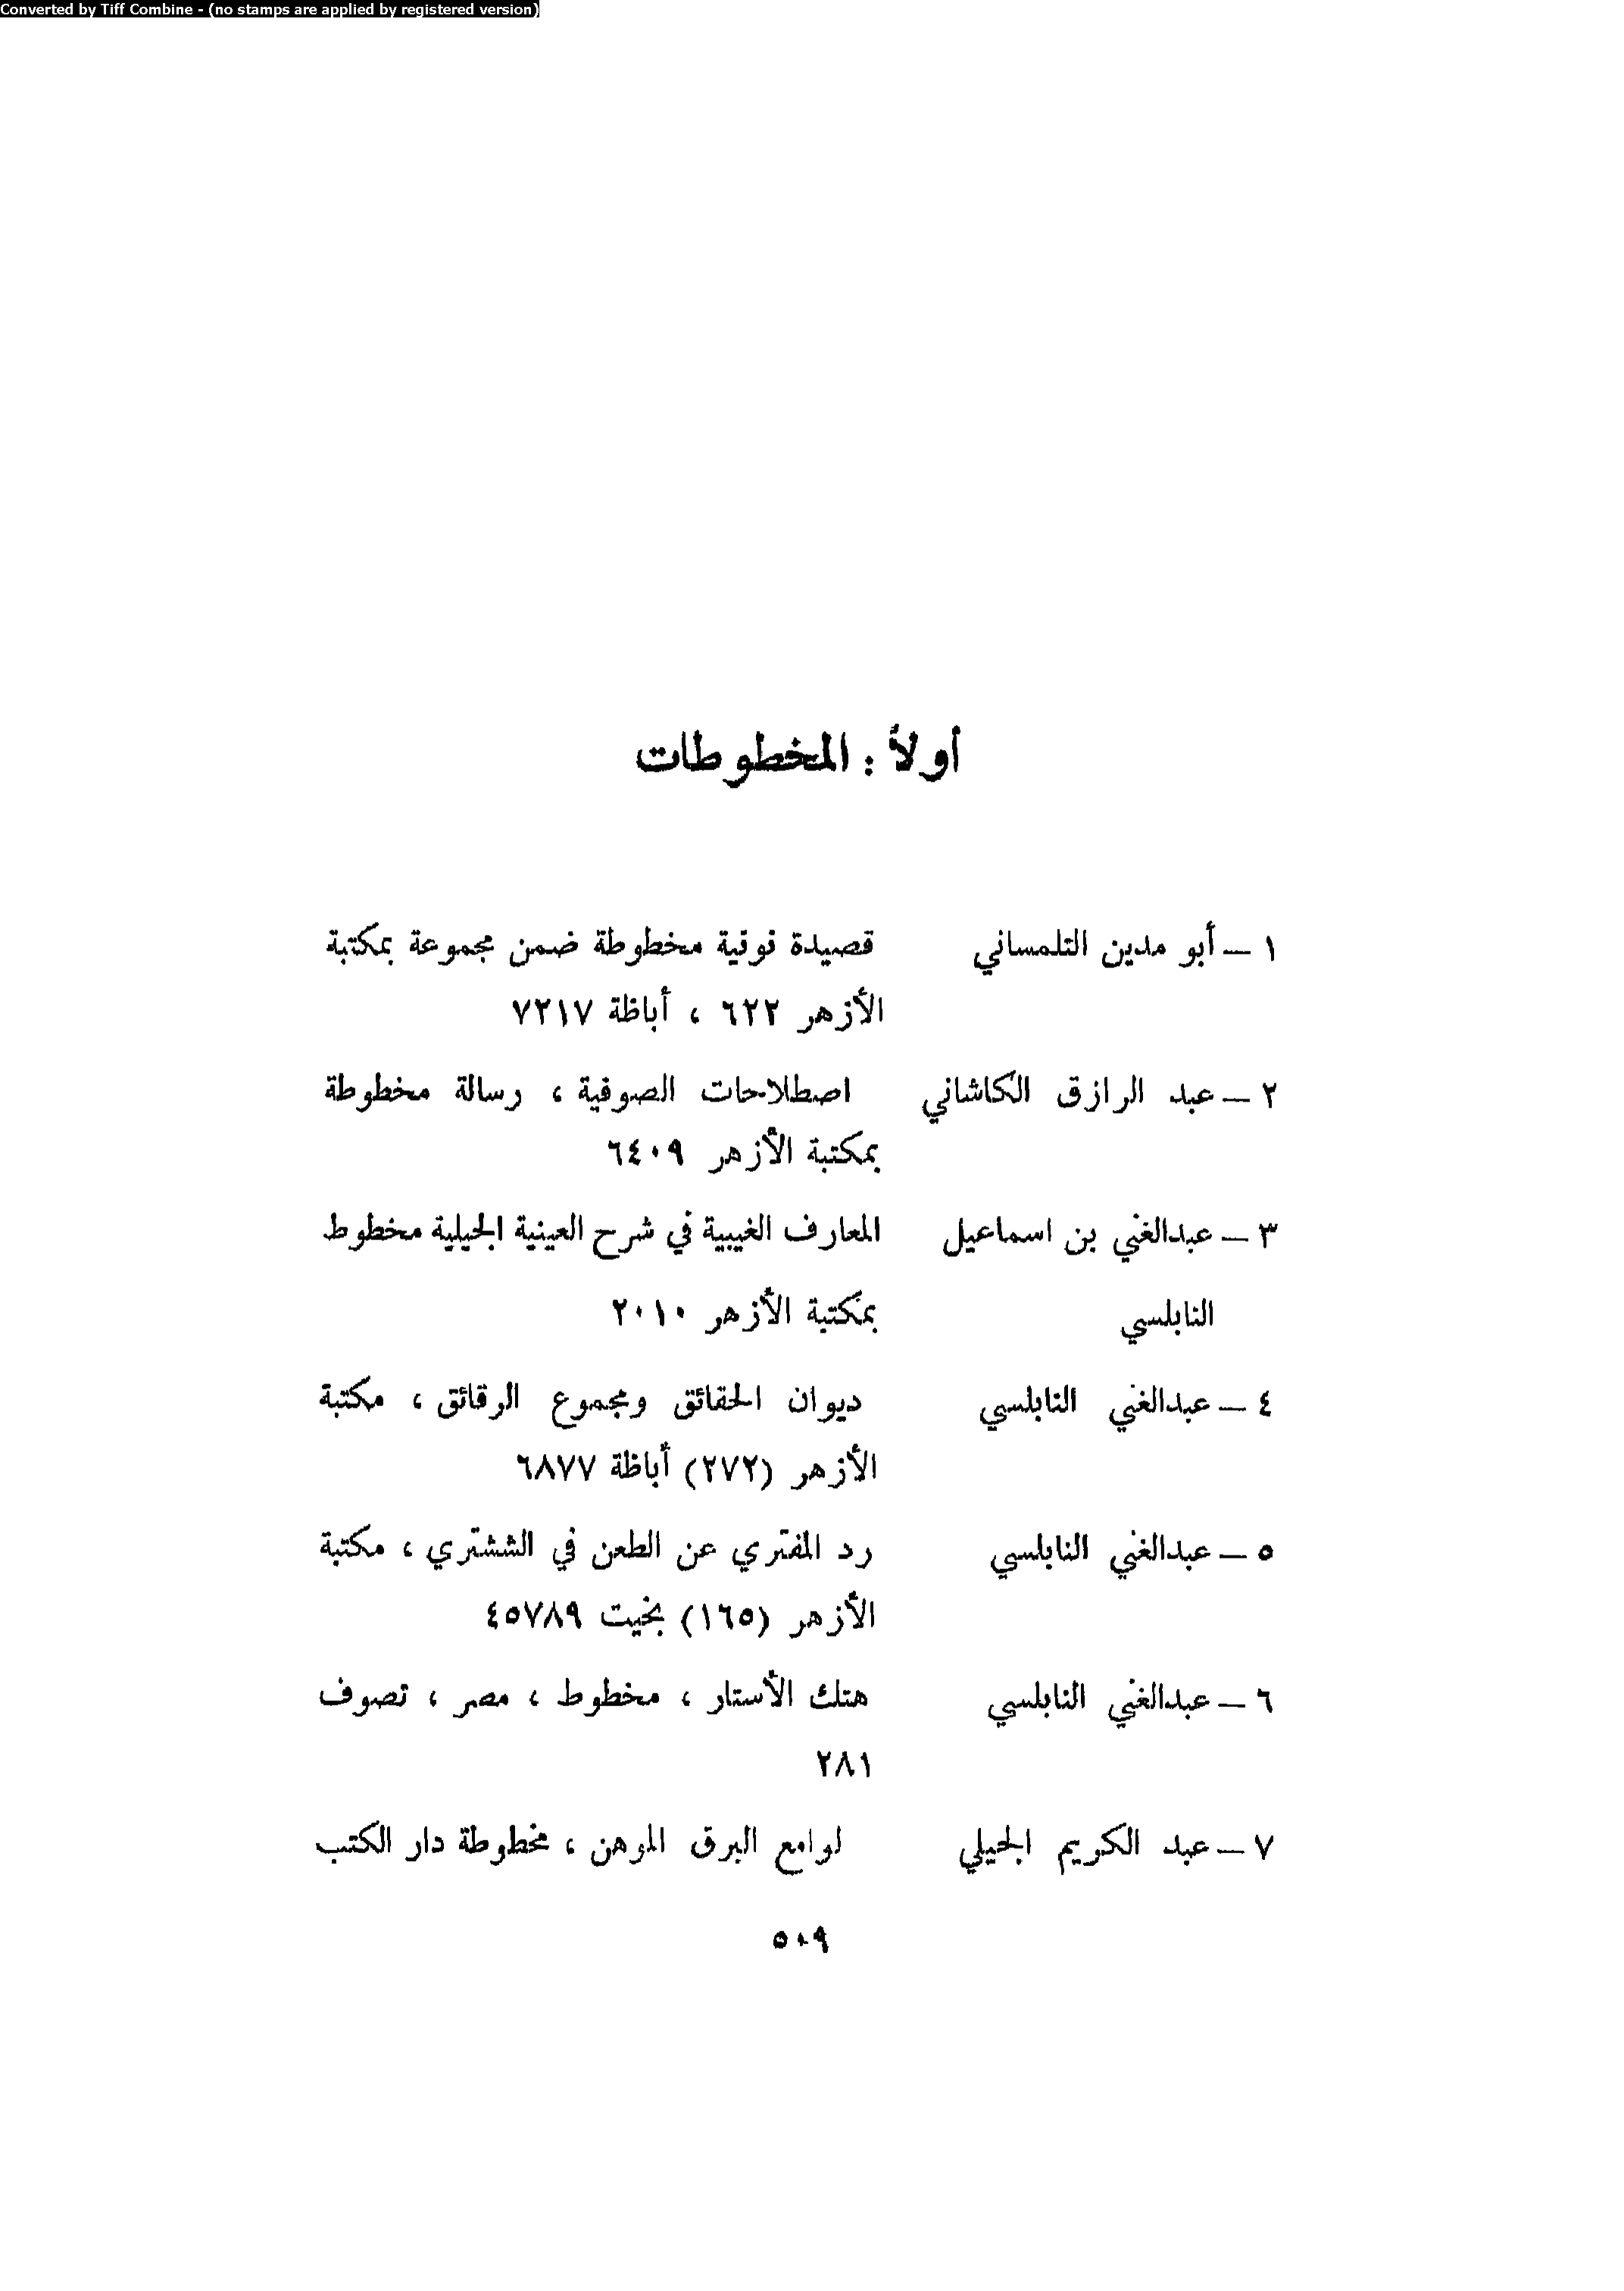 Converted by Tiff Combine - (no stamps are applied by registered version)
أولاً : المخطوطات
١ — أبو مدين التلمساني قصيدة نونية مخطوطة ضمن مجموعة بمكتبة
الأزهر ٦٢٢ ، أباظة ٧٢١٧
٢ — عبد الرازق الكاشاني اصطلاحات الصوفية ، رسالة مخطوطة
بمكتبة الأزهر ٦٤٠٩
٣ — عبدالغني بن اسماعيل المعارف الغيبية في شرح العينية الجيلية مخطوط
النابلسي بمكتبة الأزهر ٢٠١٠
٤ — عبدالغني النابلسي ديوان الحقائق ومجموع الرقائق ، مكتبة
الأزهر (٢٧٢) أباظة ٦٨٧٧
٥ — عبدالغني النابلسي رد المفتري عن الطعن في الششتري ، مكتبة
الأزهر (١٦٥) بخيت ٤٥٧٨٩
٦ — عبدالغني النابلسي هتلك الأستار ، مخطوط ، مصر ، تصوف
٢٨١
٧ — عبد الكريم الجيلي لوامع البرق الموهن ، مخطوطة دار الكتب
٥٠٩